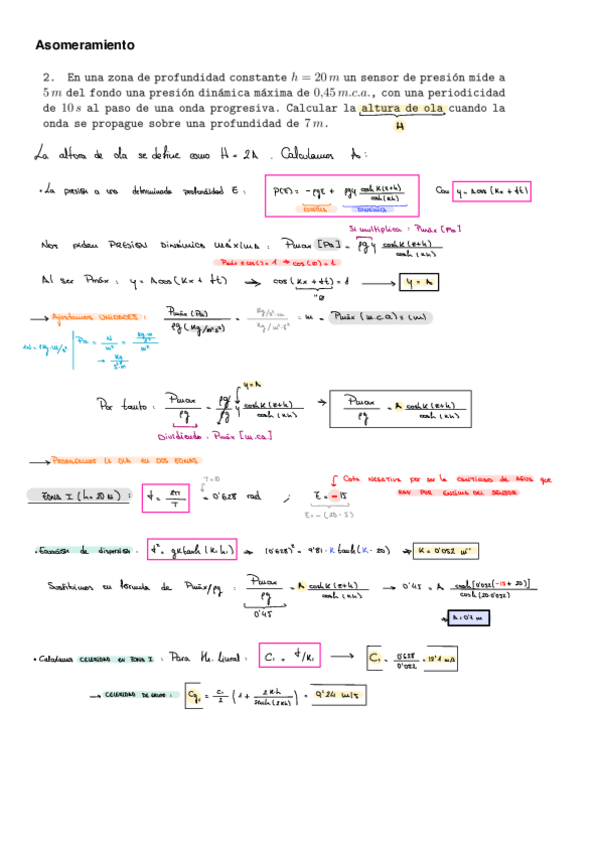 Asomeramiento
2. En una zona de profundidad constante h = 20 m un sensor de presión mide a
5 m del fondo una presión dinámica máxima de 0,45 m.c.a., con una periodicidad
de 10 s al paso de una onda progresiva. Calcular la altura de ola cuando la
onda se propague sobre una profundidad de 7 m.
H
La altura de ola se define como H = 2A . Calculamos A:
• La presión a una determinada profundidad z : P(z) = -ρgz + ρgy cosh K(z+h) / cosh(Kh) Con y = A cos (Kx + σt)
estática dinámica
Si multiplica : Pmáx [Pa]
Nos piden PRESIÓN DINÁMICA MÁXIMA : Pmax [Pa] = ρg y cosh K(z+h) / cosh (Kh)
Pmáx ⇔ cos( ) = 1 → cos (0) = 1
Al ser Pmáx : y = A cos (Kx + σt) → cos (Kx + σt) = 1 → y = A
"0
→ Ajustamos UNIDADES : Pmáx (Pa) / ρg (Kg/m²s²) = Kg/s²·m / Kg/m²·s² = m = Pmáx (m.c.a) = (m)
1N = 1Kg·m/s² Pa = N/m² = Kg·m/s² / m²
→ Kg / s²·m
y=A
Por tanto : Pmax / ρg = ρg/ρg y cosh K(z+h) / cosh (Kh) → Pmax / ρg = A cosh K(z+h) / cosh (Kh)
Dividiendo : Pmáx [m.ca.]
→ Propagamos la ola en dos zonas
T=10 Cota NEGATIVA por ser la cantidad de agua que
ZONA I (h=20m) : σ = 2π / T = 0'628 rad ; z = -15 HAY POR ENCIMA DEL SENSOR
z = -(20 - 5)
• Ecuación de dispersión : σ² = gK tanh (K₁h₁) → (0'628)² = 9'81 · K tanh (K · 20) → K = 0'052 m⁻¹
Sustituimos en fórmula de Pmáx/ρg : Pmax / ρg = A cosh K(z+h) / cosh (Kh) → 0'45 = A cosh [0'052(-15 + 20)] / cosh (20·0'052)
0'45
→ A = 0'7 m
• Calculamos CELERIDAD EN ZONA I : Para He. lineal : C₁ = σ/K₁ → C₁ = 0'628 / 0'052 = 12'1 m/s
→ CELERIDAD DE GRUPO : Cg₁ = C₁/2 (1 + 2Kh / senh (2Kh)) = 9'24 m/s